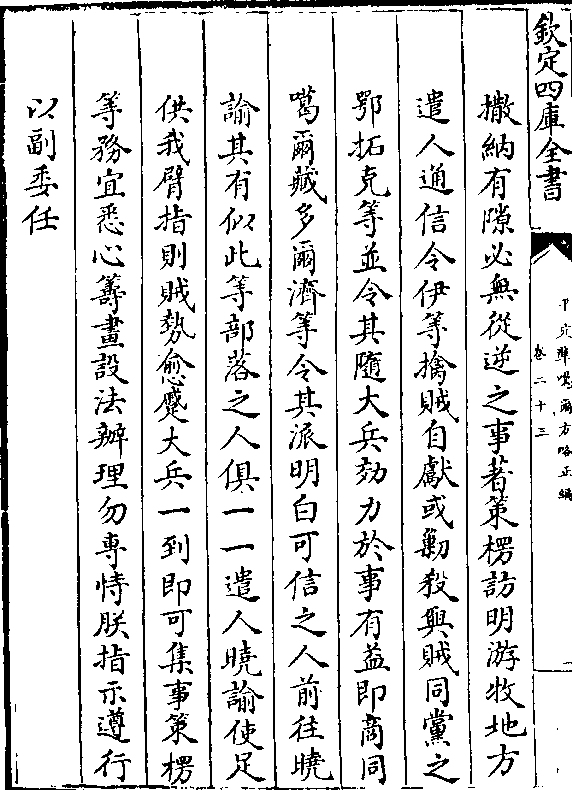 欽定四庫全書
平定準噶爾方略正編
卷二十三
撒納有隙必無從逆之事著策楞訪明游牧地方
遣人通信令伊等擒賊自獻或勦殺與賊同黨之
鄂拓克等並令其隨大兵効力於事有益即商同
噶爾藏多爾濟等令其派明白可信之人前往曉
諭其有似此等部落之人俱一一遣人曉諭使足
供我臂指則賊勢愈蹙大兵一到即可集事策楞
等務宜悉心籌畫設法辦理勿專恃朕指示遵行
以副委任